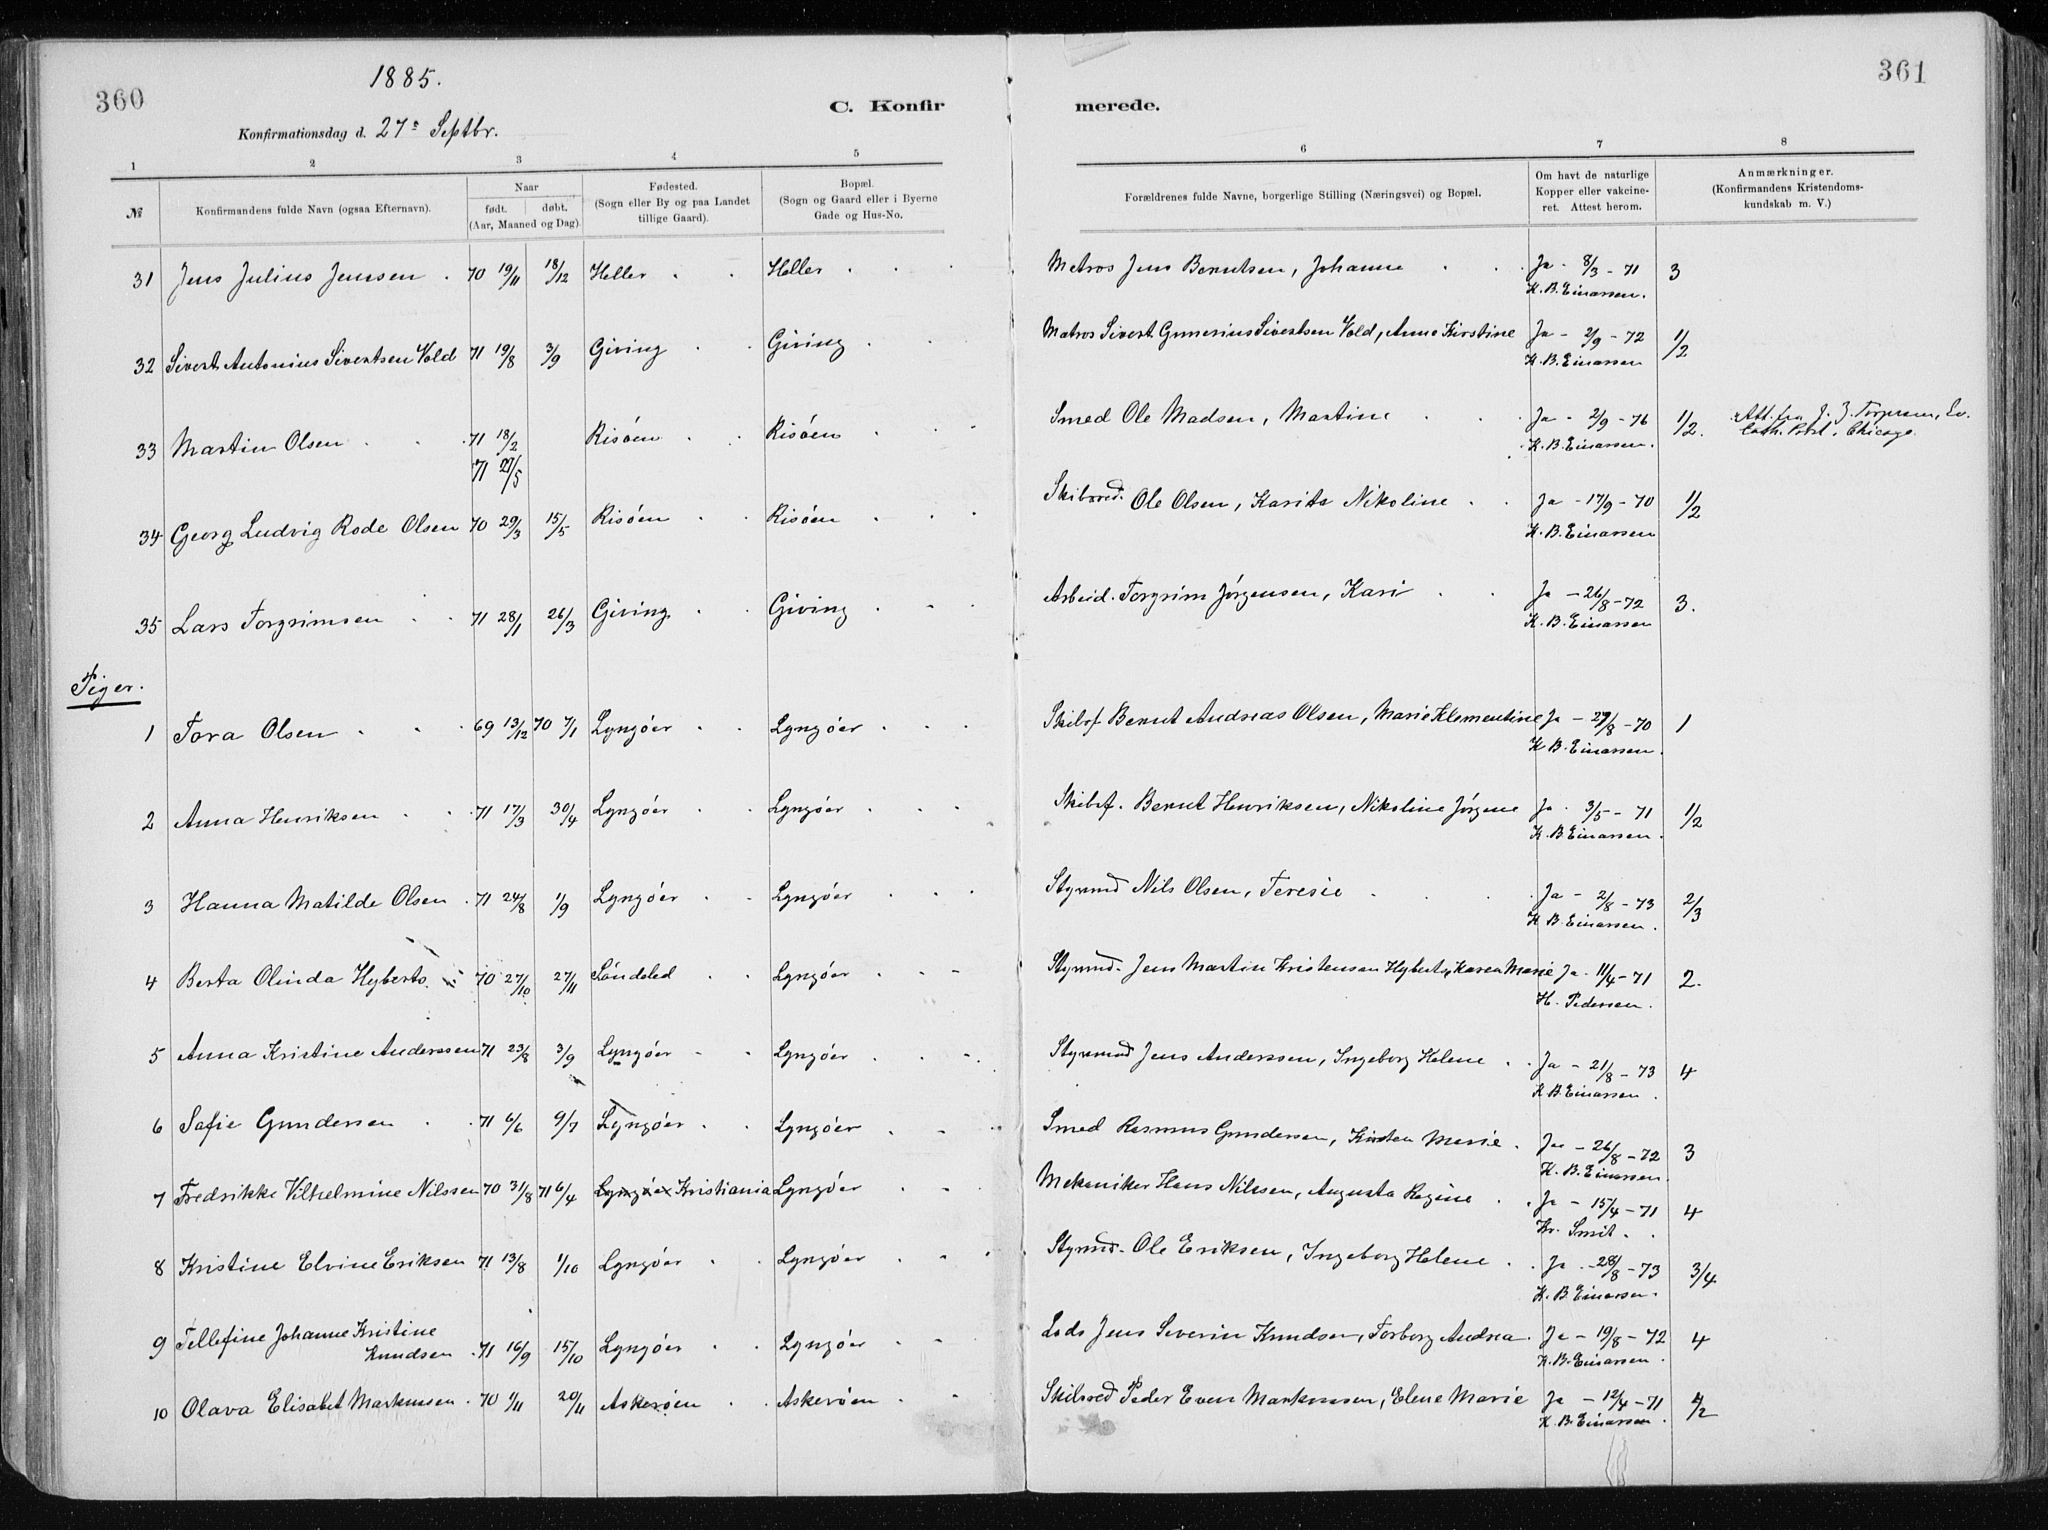 360
1885.
C. Konfir
Konfirmationsdag d. 27de Septbr.
1 2 3 4 5
№ Konfirmandens fulde Navn (ogsaa Efternavn). Naar født. døbt. (Aar, Maaned og Dag). Fødested. (Sogn eller By og paa Landet tillige Gaard). Bopæl. (Sogn og Gaard eller i Byerne Gade og Hus-No.
361
merede.
6 7 8
Forældrenes fulde Navne, borgerlige Stilling (Næringsvei) og Bopæl. Om havt de naturlige Kopper eller vakcineret. Attest herom. Anmærkninger. (Konfirmandens Kristendomskundskab m. V.)
31 Jens Julius Jensen 70 19/11 18/12 Heller Heller Matros Jens Berntsen, Johanne Ja - 8/3 - 71 3
K. B. Einarsen.
32 Sivert Antonius Sivertsen Vold 71 19/8 3/9 Giving Giving Matros Sivert Gunerius Sivertsen Vold, Anne Kirstine Ja - 2/9 - 72 1/2
K. B. Einarsen
33 Martin Olsen 71 18/2 Risøen Risøen Smed Ole Madsen, Martine Ja - 2/9 - 76 1/2. Att. fra J. Z. Torgersen, Ev.
71 27/5 K. B. Einarsen. Luth. Præst. Chicago.
34 Georg Ludvig Rode Olsen 70 29/3 15/5 Risøen Risøen Skibsred. Ole Olsen, Karitas Nikoline Ja - 17/9 - 70 1/2
K. B. Einarsen
35 Lars Torgrimsen 71 28/1 26/3 Giving Giving Arbeid. Torgrim Jørgensen, Kari Ja - 26/8 - 72 3.
K. B. Einarsen
Piger.
1 Tora Olsen 69 13/12 70 7/1 Lyngøer Lyngøer Skibsf. Bernt Andreas Olsen, Marie Klementine Ja - 27/8 - 70 1
K. B. Einarsen.
2 Anna Henriksen 71 17/3 30/4 Lyngøer Lyngøer Skibsf. Bernt Henriksen, Nikoline Jørgene Ja - 3/5 - 71 1/2
K. B. Einarsen.
3 Hanna Matilde Olsen 71 24/8 1/9 Lyngøer Lyngøer Styrmd Nils Olsen, Teresie Ja - 2/8 - 73 2/3
K. B. Einarsen.
4 Berta Olinda Hyberts 70 27/10 27/11 Søndeled Lyngøer Styrmd. Jens Martin Kristensen Hyberts, Karen Marie Ja - 11/4 - 71 2.
H. Pedersen.
5 Anna Kristine Anderssen 71 23/8 3/9 Lyngøer Lyngøer Styrmd Jens Anderssen, Ingeborg Helene Ja - 21/8 - 73 4
K. B. Einarsen.
6 Sofie Gundersen 71 6/6 9/7 Lyngøer Lyngøer Smed Rasmus Gundersen, Kirsten Marie Ja - 26/8 - 72 3
K. B. Einarsen.
7 Fredrikke Vilhelmine Nilssen 70 31/8 71 6/4 Lyngøer Kristiania Lyngøer Mekaniker Hans Nilssen, Augusta Regine Ja - 15/4 - 71 4
Kr. Smit.
8 Kristine Elvine Eriksen 71 13/8 1/10 Lyngøer Lyngøer Styrmd. Ole Eriksen, Ingeborg Helene Ja - 28/8 - 73 3/4
K. B. Einarsen.
9 Tellefine Johanne Kristine
Knudsen 71 16/9 15/10 Lyngøer Lyngøer Lods Jens Severin Knudsen, Torborg Andrea Ja - 19/8 - 72 4
K. B. Einarsen.
10 Olava Elisabet Markussen 70 1/11 20/11 Askerøen Askerøen Skibsred Peder Even Markussen, Elene Marie Ja - 12/4 - 71 1/2
K. B. Einarsen.